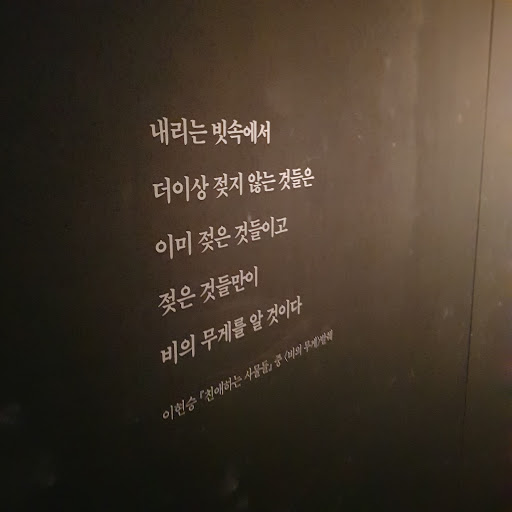 내리는 빗속에서
더이상 젖지 않는 것들은
이미 젖은 것들이고
젖은 것들만이
비의 무게를 알 것이다
이현승 『친애하는 사물들』 중 〈비의 무게〉 발췌